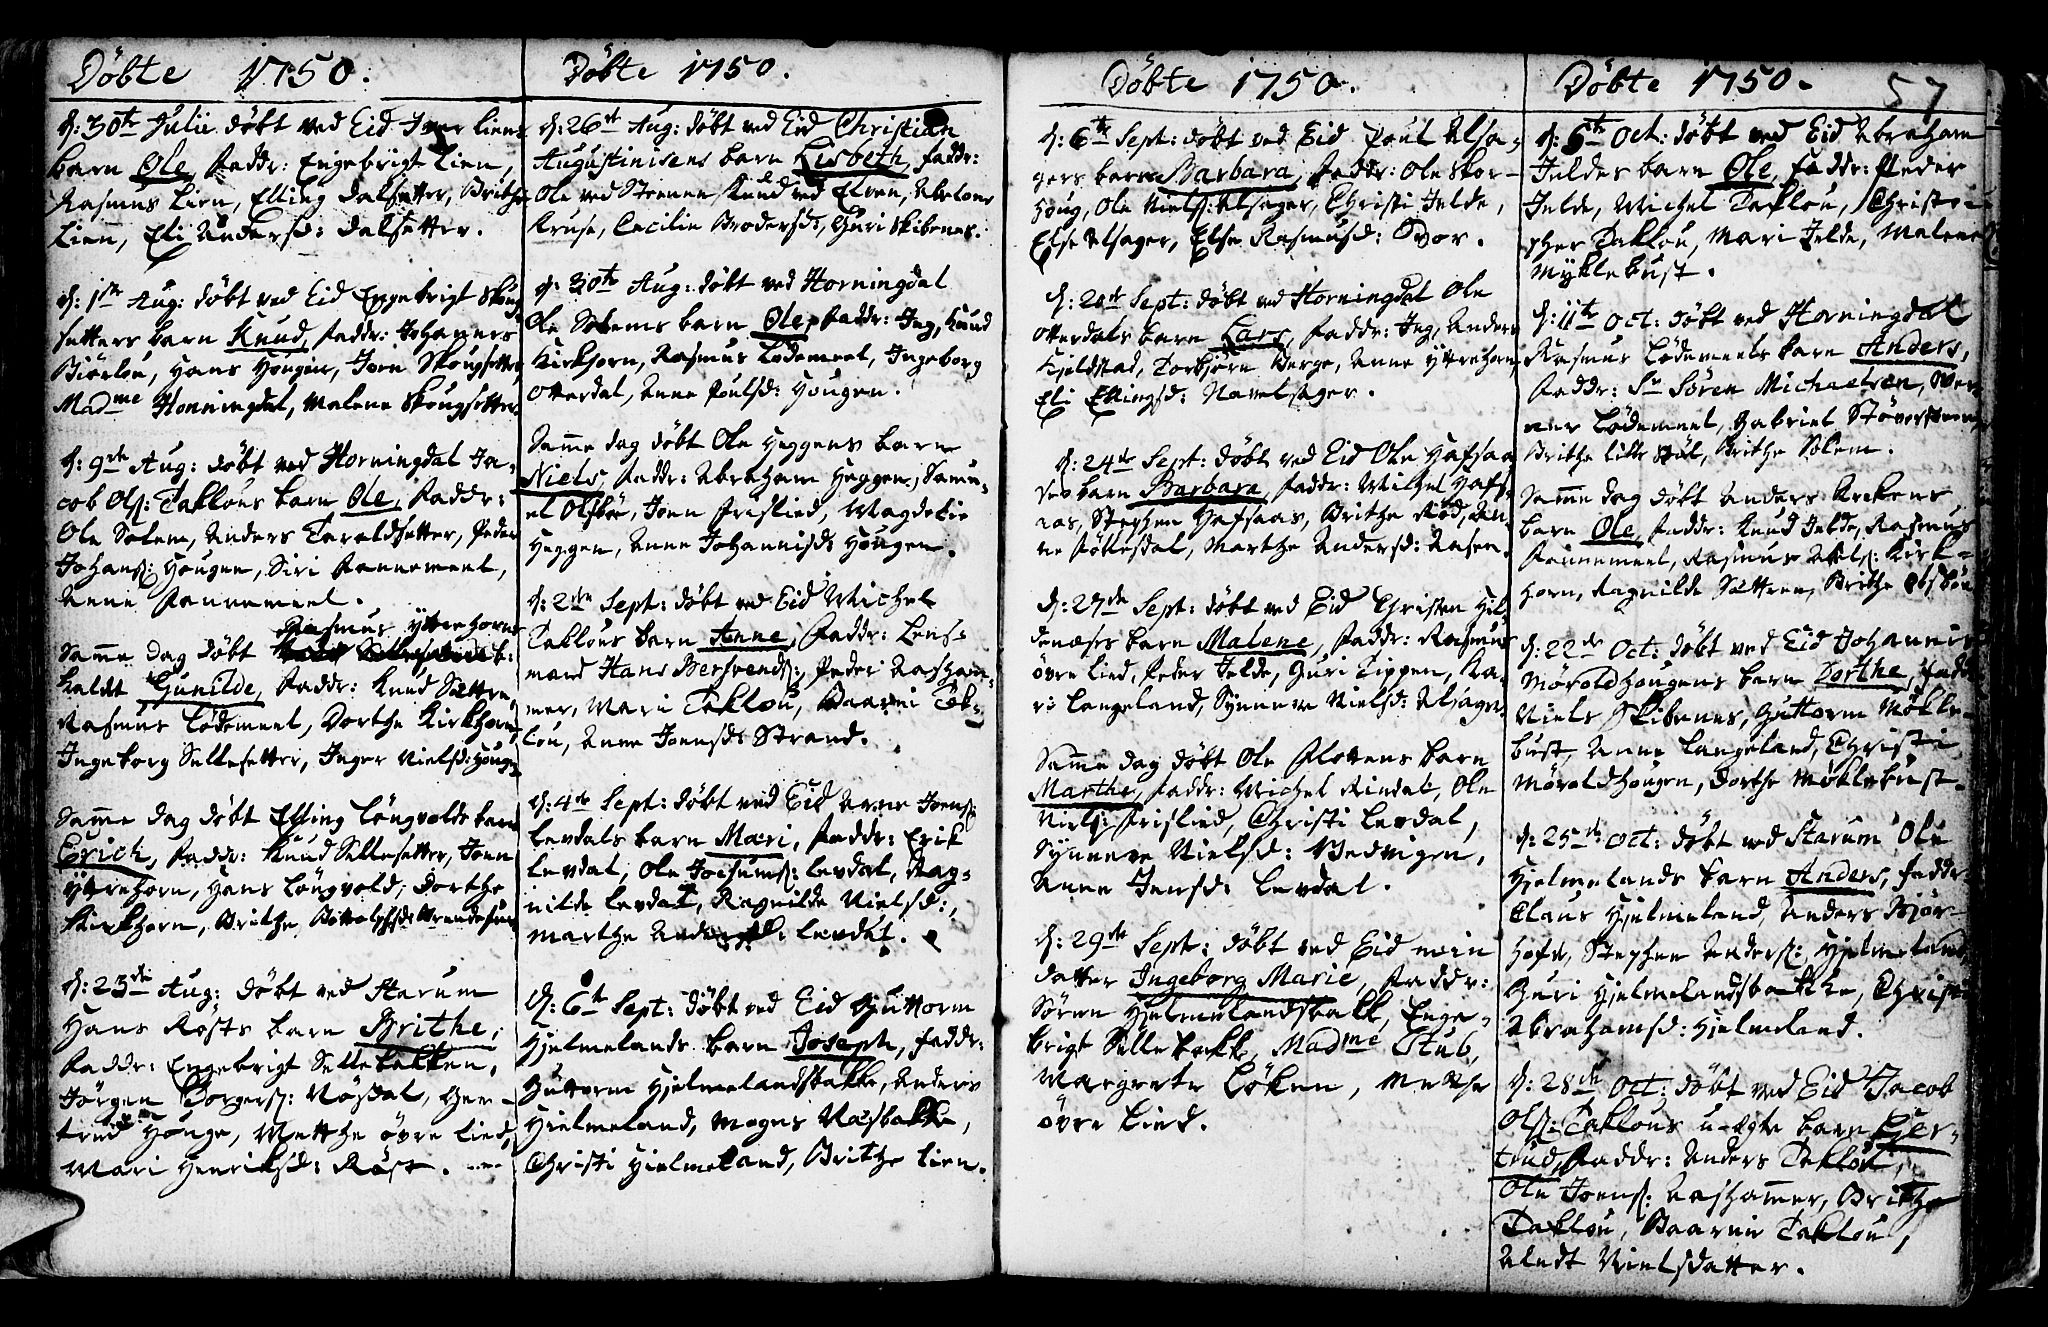 Döbte 1750.
d: 30te Julii döbt ved Eid Iver Liens
barn Ole, Faddr: Engebrigt Lien,
Rasmus Lien, Elling Dalsetter, Brithe
Lien, Eli Andersd: Dalsetter.
d: 1ste Aug: döbt ved Eid Engebrigt Skoug-
setters barn Knud, Faddr: Johannes
Biörlou, Hans Hougen, Joen Skougsetter,
Madme Honningdal, Malene Skougsetter
d: 9de Aug: döbt ved Horningdal Ja-
cob Ols: Taklous barn Ole, Faddr:
Ole Solem, Anders Taraldsetter, Peder
Johans: Hougen, Siri Rannemeel,
Anne Rannemeel.
Rasmus Yttrehorns
Samme dag döbt b:
kaldt Gunilde, Faddr: Knud Sættre,
Rasmus Lödemeel, Dorthe Kirkhorn,
Ingeborg Sellesetter, Inger Nielsd: Houge
Samme dag döbt Elling Löngvolds barn
Erich, Faddr: Knud Sellesetter, Joen
Yttrehorn, Hans Löngvold, Dorthe
Kirkhorn, Brithe
d: 23de Aug: döbt ved Starum
Hans Rösts barn Brithe,
Faddr: Engebrigt Sellebakken,
Jörgen Borgers: Nösdal, Ger-
trud Houge, Mettche övre Lied,
Mari Henriksd: Röst.
Döbte 1750.
d: 26st Aug: döbt ved Eid Christian
Augustinisens barn Lisbeth, Faddr:
Ole ved Steenen Knud ved Elven, Abelone
Kruse, Cecilie Brodersd:, Guri Skibenes.
d: 30te Aug: döbt ved Horningdal
Ole Solems barn Ole, Faddr: Ing, Knud
Kirkhorn, Rasmus Lödemeel, Ingeborg
Otterdal, Anne Poulsd: Hougen.
Samme dag döbt Ole Heggens barn
Niels, Faddr: Abraham Heggen, Samu-
el Olsböe, Joen Frislied, Magdelie
Heggen, Anne Johannisd: Hougen.
d: 2den Sept: döbt ved Eid Michel
Taklous barn Anne, Faddr: Lens-
mand Hans Bersvends:, Peder Naesham-
mer, Mari Taklou, Baarni Tak-
lou, Anne Joensd: Strand.
d: 4de Sept: döbt ved Eid Arne Joens:
Levdals barn Mari, Faddr: Erik
Levdal, Ole Jocsums: Levdal, Rag-
nilde Levdal, Ragnilde Nielsd:,
Marthe Andersd: Levdal.
d: 6t Sept: döbt ved Eid Guttorm
Hjelmelands barn Joseph, Faddr:
Guttorm Hjelmelandsbakke, Anders
Hjelmeland, Mogns Naesbakke,
Christi Hjelmeland, Brithe Lien.
Döbte 1750.
d: 6te Sept: döbt ved Eid Poul Alsa-
gers barn Barbara, Faddr: Ole Skor-
houg, Ole Niels: Alsager, Christi Jelde,
Else Alsager, Else Rasmusd: Bvor.
d: 20de Sept: döbt ved Horningdal Ole
Otterdals barn Lars, Faddr: Ing, Anders
Kjeldstad, Torbjörn Berge, Anne Yttrehorn
Eli Ellingsd: Navelsager.
d: 24de Sept: döbt ved Eid Ole Hafsaa
ses barn Barbara, Faddr: Michel Hafs-
aas, Stephen Hafsaas, Brithe Röd, An-
ne Föllesdal, Marthe Andersd: Aasen.
d: 27de Sept: döbt ved Eid Christen Hil-
denæses barn Malene, Faddr: Rasmus
övre Lied, Peder Jelde, Guri Tippen, Ka-
ri Langeland, Synneve Nielsd: Alsager.
Samme dag döbt Ole Flottens barn
Marthe, Faddr: Michel Rindal, Ole
Niels: Frislied, Christi Levdal,
Synneve Nielsd: Bedvigen,
Anne Jensd: Levdal.
d: 29de Sept: döbt ved Eid min
datter Ingeborg Marie, Faddr:
Sören Hjelmelandsbakk, Enge-
brigt Sellebakke, Madme Stub,
Margrete Löken, Mettche
övre Lied.
Döbte 1750. 57
d: 5te Oct: döbt ved Eid Abraham
Jeldes barn Ole, Faddr: Peder
Jelde, Michel Taklou, Christo-
pher Taklou, Mari Jelde, Malene
Myklebust.
d: 11te Oct: döbt ved Horningdal
Rasmus Lödemeels barn Anders,
Faddr: Sr Sören Michaelsen, Wer-
ner Lödemeel, Gabriel
Brithe Lille Stöl, Brithe Solem.
Samme dag döbt Anders Krekens
barn Ole, Faddr: Knud Jelde, Rasmus
Rannemeel, Rasmus Abels: Kirk-
horn, Ragnilde Sættren, Brithe Olsböe
d: 22de Oct: döbt ved Eid Johannis
Möroldhougens barn Dorthe, Fadd:
Niels Skibenes, Guttorm Mökle-
bust, Anne Langeland, Christi
Möroldhougen, Dorthe Möklebust.
d: 25de Oct: döbt ved Starum Ole
Hjelmelands barn Anders, Faddr:
Claus Hjelmeland, Anders Biör-
hofn, Stephen Anders: Hjelmeland,
Guri Hjelmelandsbakke, Christi
Abrahamsd: Hjelmeland.
d: 28de Oct: döbt ved Eid Jacob
Ols: Taklous u-ægte barn Gjer-
trud, Faddr: Anders Taklou,
Ole Joens: Naeshammer, Brithe
Taklou, Baarni Taklou,
Alndt Nielsdatter.